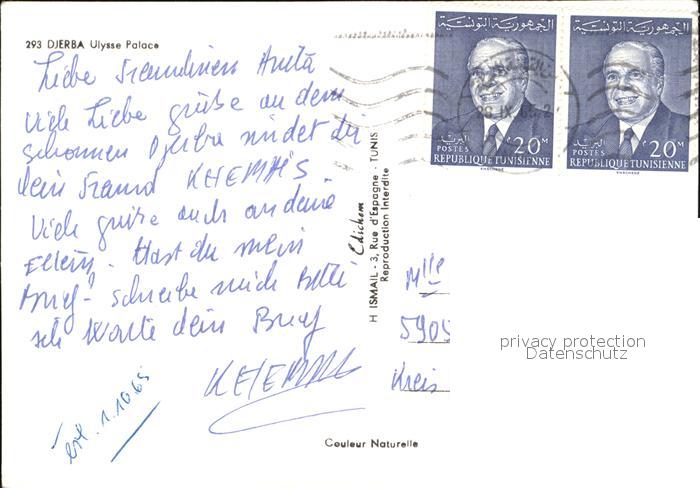 293 DJERBA Ulysse Palace
Liebe Freundinen Anita
Viele Liebe grüße an dem
schönnen Djerba sindet dir
dein Freund KHEMAIS.
Viele grüße auch an deine
Eltern. Hast du mein
Brief? schreibe mich Bitte
ich Warte dein Brief
KHEMAIS
1.10.65
Edichem
H ISMAIL - 3, Rue d'Espagne - TUNIS
Reproduction Interdite
Couleur Naturelle
الجمهورية التونسية
البريد
20 M
POSTES
REPUBLIQUE TUNISIENNE
الجمهورية التونسية
البريد
20 M
POSTES
REPUBLIQUE TUNISIENNE
Mlle
590
Kreis
privacy protection
Datenschutz